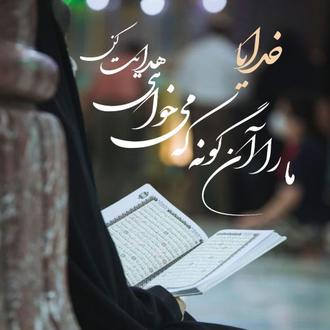 خدایا
ما را آن گونه که می خواهی هدایت کن